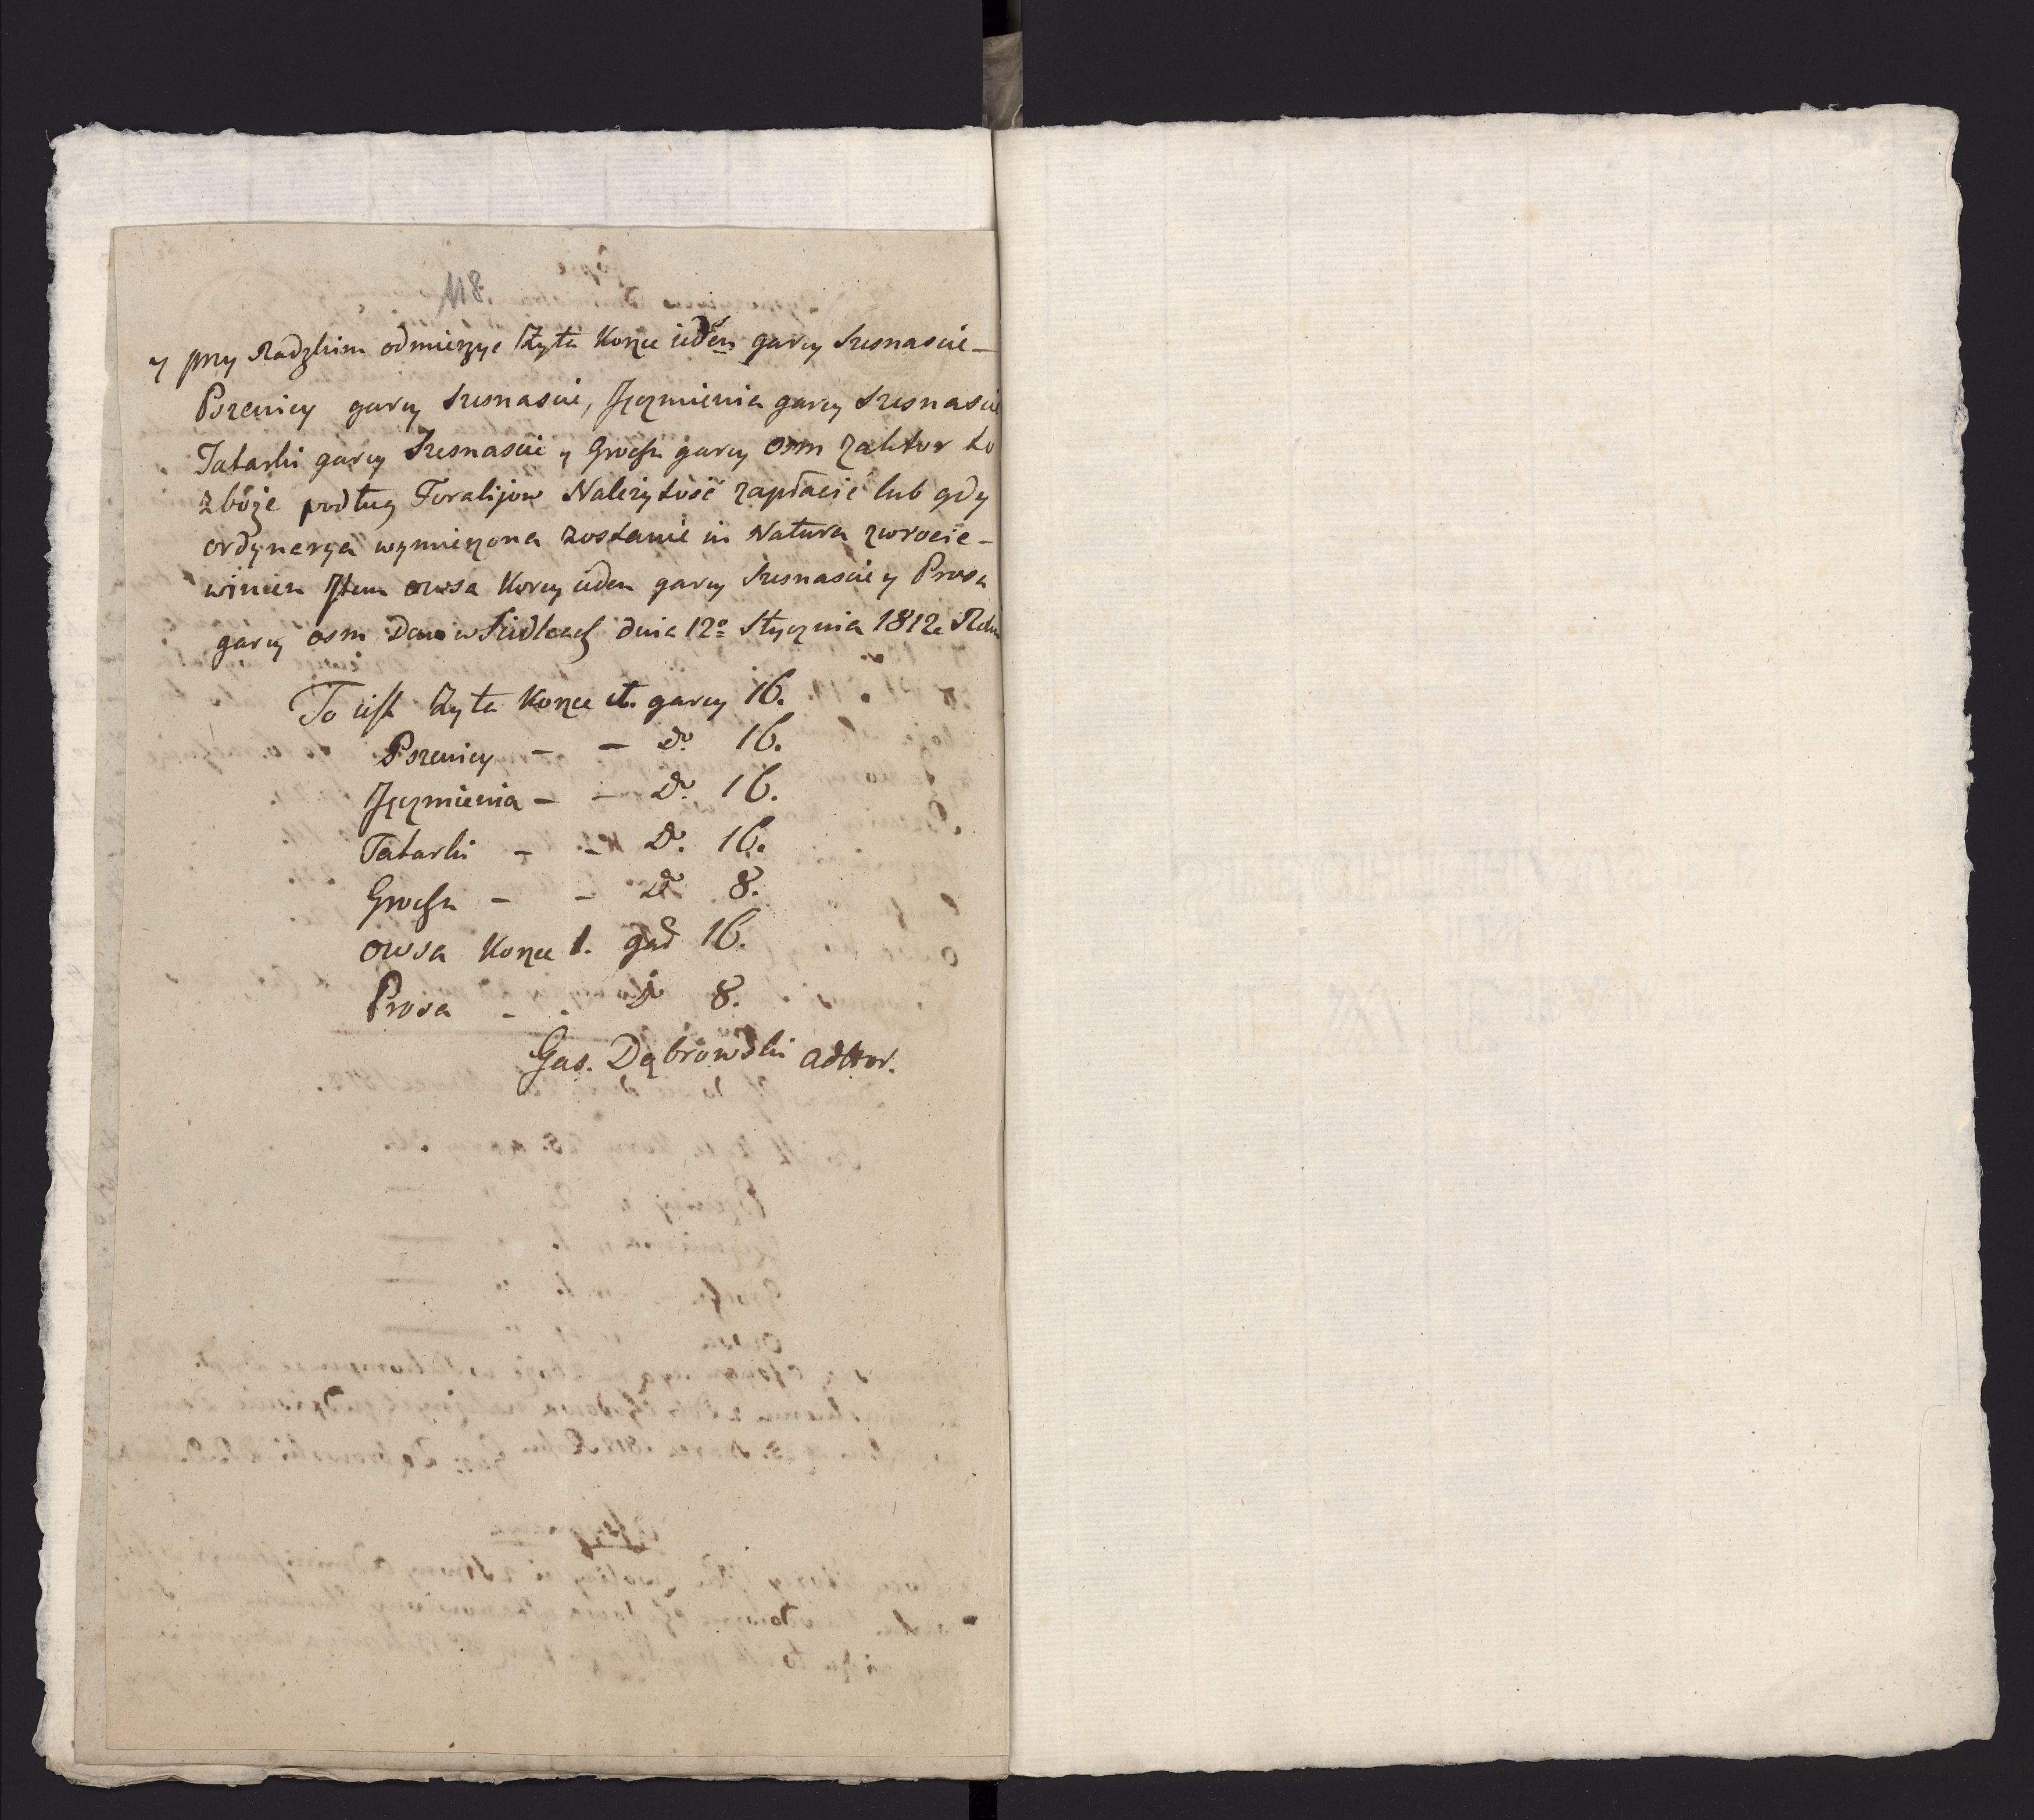 118.
y przy Radzkim odmierzyc Zyta Korzec ieden garcy szesnascie —
Pszenicy garcy szesnascie, Jęczmienia garcy szesnascie
Tatarki garcy szesnascie y Grochu garcy osm za ktor to
zbóże podług Foralijow Należytość zapłacić lub gdy
ordynarya wymierzona zostanie in Natura zwrocic —
winien Item owsa Korcy ieden garcy szesnascie y Prosa
garcy osm Dan w Siedlcach dnia 12o Stycznia 1812 Roku
To iest Zyta Korzec 1. garcy 16.
Pszenicy — — Do. 16.
Jęczmienia — — Do. 16.
Tatarki — — Do. 16.
Grochu — — Do 8.
owsa Korzec 1. gad 16.
Prosa - - Do 8.
Gas. Dąbrowski adttor.